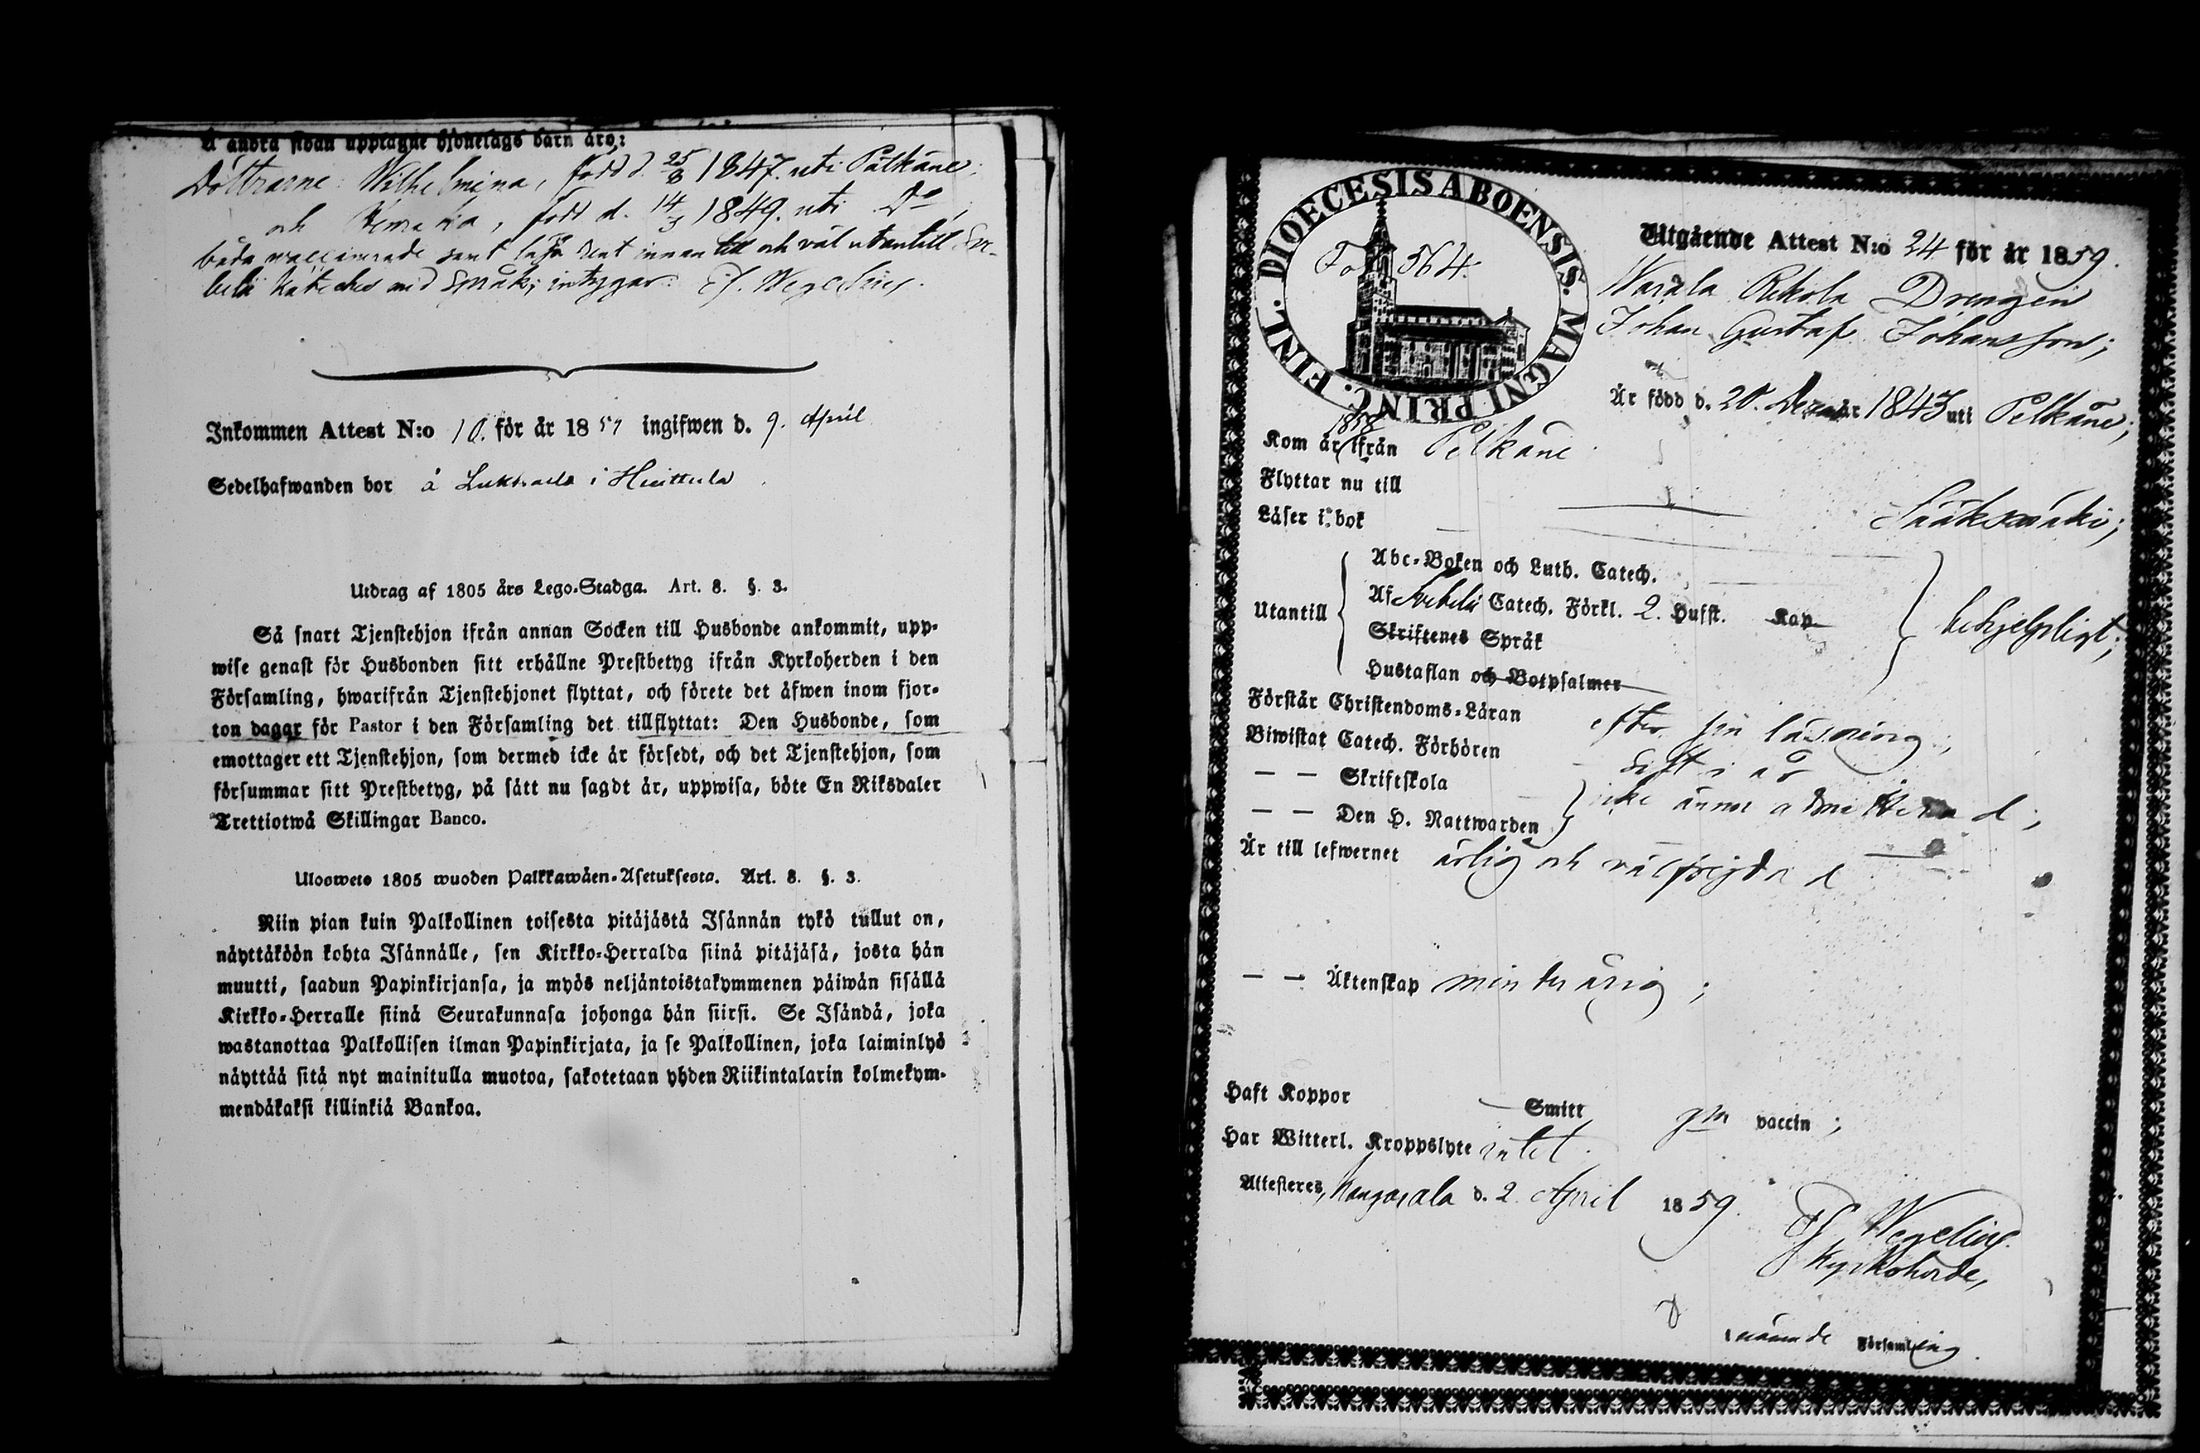 å andra sidan upptagne hjonelags barn äro:
Döttrarne: Wilhelmina, född d. 25/8 1847. uti Pelkäne,
och Hendrika, född d. 14/3 1849. uti Do,
båda vaccinerade samt läsa rent innantill och väl utantill Sve-
belii Kateches med Språk; intygar: Wegelius.
Inkommen Attest N:o 10. för år 1859 ingifwen d. 9. April
Sedelhafwanden bor å i Huittula
Utdrag af 1805 års Lego-Stadga. Art. 8. §. 3.
Så snart Tjenstehjon ifrån annan Socken till Husbonde ankommit, upp-
wise genast för Husbonden sitt erhållne Prestbetyg ifrån Kyrkoherden i den
Församling, hwarifrån Tjenstehjonet flyttat, och förete det äfwen inom fjor-
ton dagar för Pastor i den Församling det tillflyttat: Den Husbonde, som
emottager ett Tjenstehjon, som dermed icke är försedt, och det Tjenstehjon, som
försummar sitt Prestbetyg, på sätt nu sagdt är, uppwisa, böte En Riksdaler
Trettiotwå Skillingar Banco.
Ulosweto 1805 wuoden Palkkawäen-Asetuksesta. Art. 8. §. 3.
Niin pian kuin Palkollinen toisesta pitäjästä Isännän tykö tullut on,
näyttäköön kohta Isännälle, sen Kirkko-Herralda siinä pitäjäsä, josta hän
muutti, saadun Papinkirjansa, ja myös neljäntoistakymmenen päiwän sisällä
Kirkko-Herralle siinä Seurakunnasa johonga hän siirsi. Se Isändä, joka
wastanottaa Palkollisen ilman Papinkirjata, ja se Palkollinen, joka laiminlyö
näyttää sitä nyt mainitulla muotoa, sakotetaan yhden Riikintalarin kolmekym-
mendäkaksi killinkiä Bankoa.
DIOECESIS ABOENSIS. MAGNI PRINC. FINL.
Fol 564.
Utgående Attest N:o 24 för år 1859.
Rekola Drengen
Johan Gustaf Johansson;
Är född d. 20. December 1843 uti Pelkäne;
Kom år 1858 ifrån Pelkäne
Flyttar nu till
Sääksmäki;
Läser i bok
Abc-Boken och Luth. Catech.
Utantill Af Svebelii Catech. Förkl. 2. Hufst. Kap behjelpligt;
Skriftenes Språk
Hustaflan och Botpsalmer
Förstår Christendoms-Läran efter sin läsning;
Biwistat Catech. Förhören sist i år
— — Skriftskola
— — Den H. Nattwarden icke ännu admitterad;
Är till lefwernet ärlig och välfrejdad
— — Äktenskap minderårig;
Haft Koppor — Smitt gm vaccin;
Har Witterl. Kroppslyte intet.
Attesteres, Kangasala d. 2 April 1859.
Wegelius.
Kyrkoherde,
i nämnde Församling.